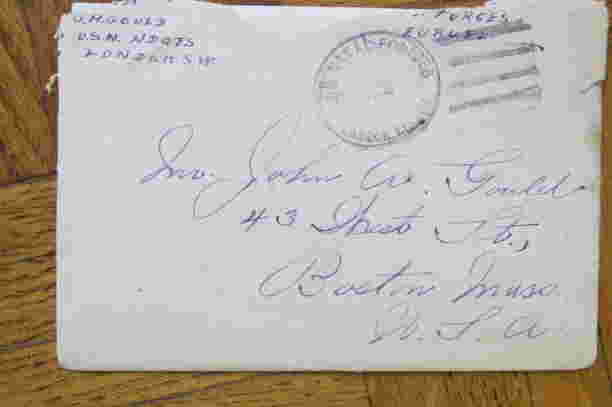 U.H.GOULD
U.S.N. NDQTS
LONDON SW.
FORCES
EUROPE
U.S. NAVAL FORCES
Mr. John W. Gould
43 St.,
Boston Mass.
U. S. A.